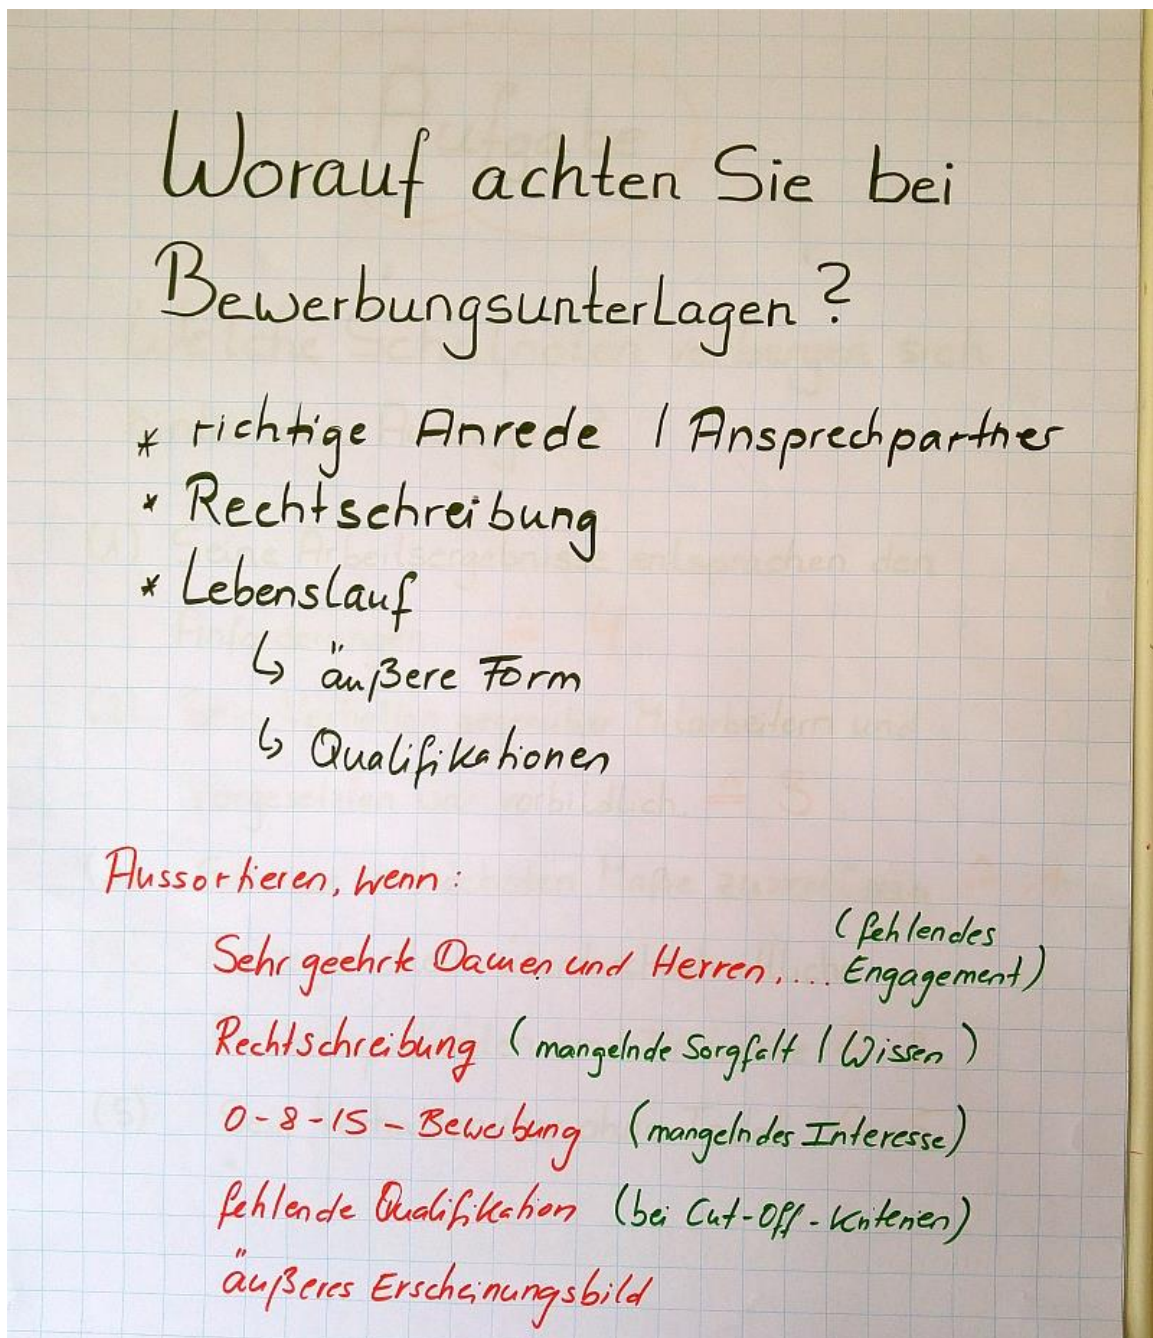 Worauf achten Sie bei
Bewerbungsunterlagen?
* richtige Anrede / Ansprechpartner
* Rechtschreibung
* Lebenslauf
↳ äußere Form
↳ Qualifikationen
Aussortieren, wenn:
Sehr geehrte Damen und Herren,... (fehlendes
Engagement)
Rechtschreibung (mangelnde Sorgfalt / Wissen)
0-8-15-Bewerbung (mangelndes Interesse)
fehlende Qualifikation (bei Cut-Off-Kriterien)
äußeres Erscheinungsbild